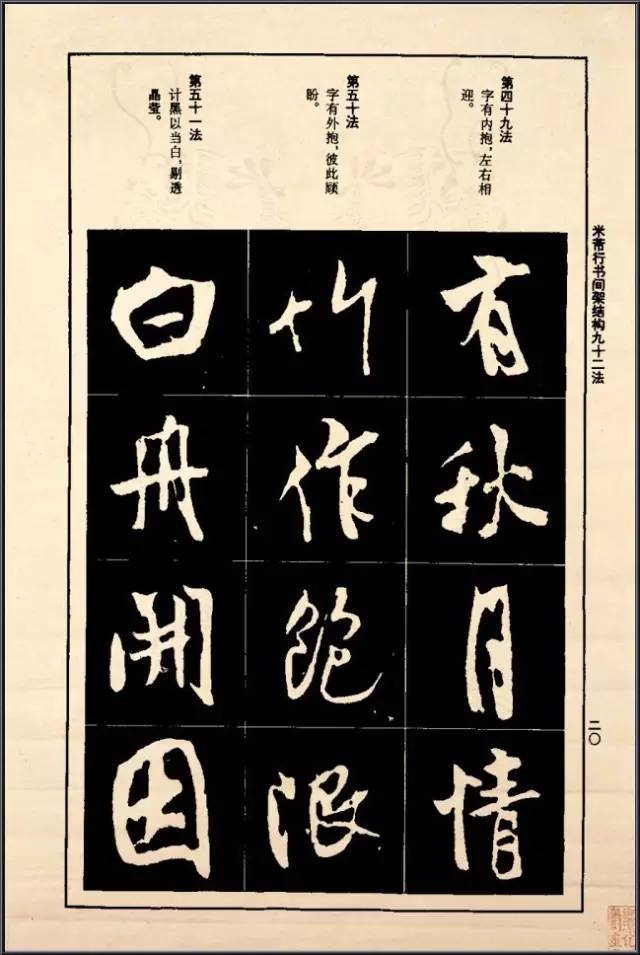 米芾行书间架结构九十二法
二〇
第四十九法
字有内抱，左右相
迎。
有秋月情
第五十法
字有外抱，彼此顾
盼。
竹作飽
第五十一法
计黑以当白，剔透
晶莹。
白舟開因